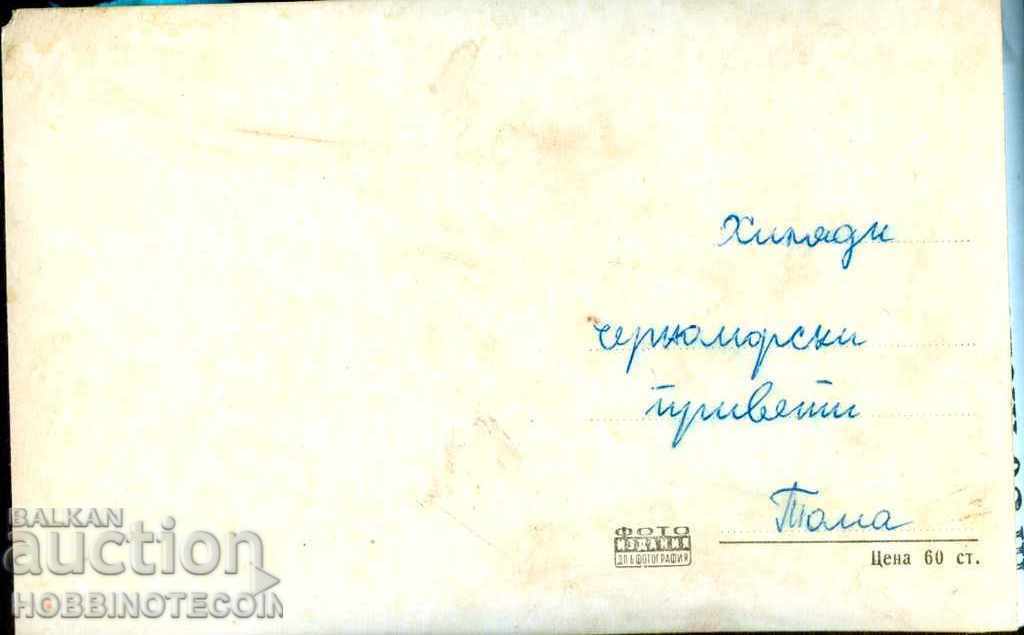 Хиляди
черноморски
привети
Тома
ФОТО
ИЗДАНИЯ
ДП БФОТОГРАФИЯ
Цена 60 ст.
BALKAN
auction
HOBBINOTECOIN